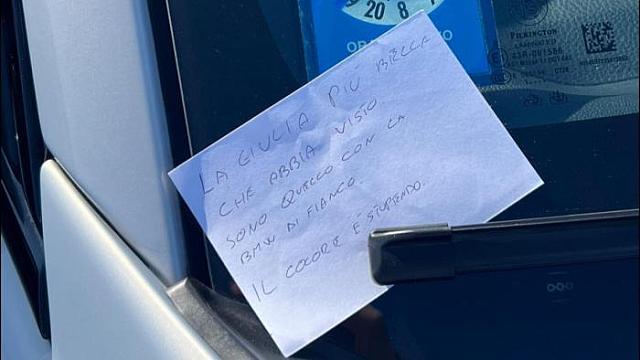 20 8
PILKINGTON
LA GIULIA PIÙ BELLA
CHE ABBIA VISTO
SONO QUELLO CON LA
BMW DI FIANCO.
IL COLORE È STUPENDO.